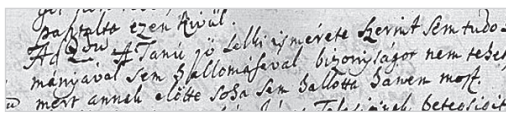 pasztalta ezen kivűl.
Ad 2dum 4 Tanú jó Lelki ismérete szerint sem tudo-
mányával sem hallomásával bizonyságot nem tehet
mert annak előtte soha sem hallotta hanem most.